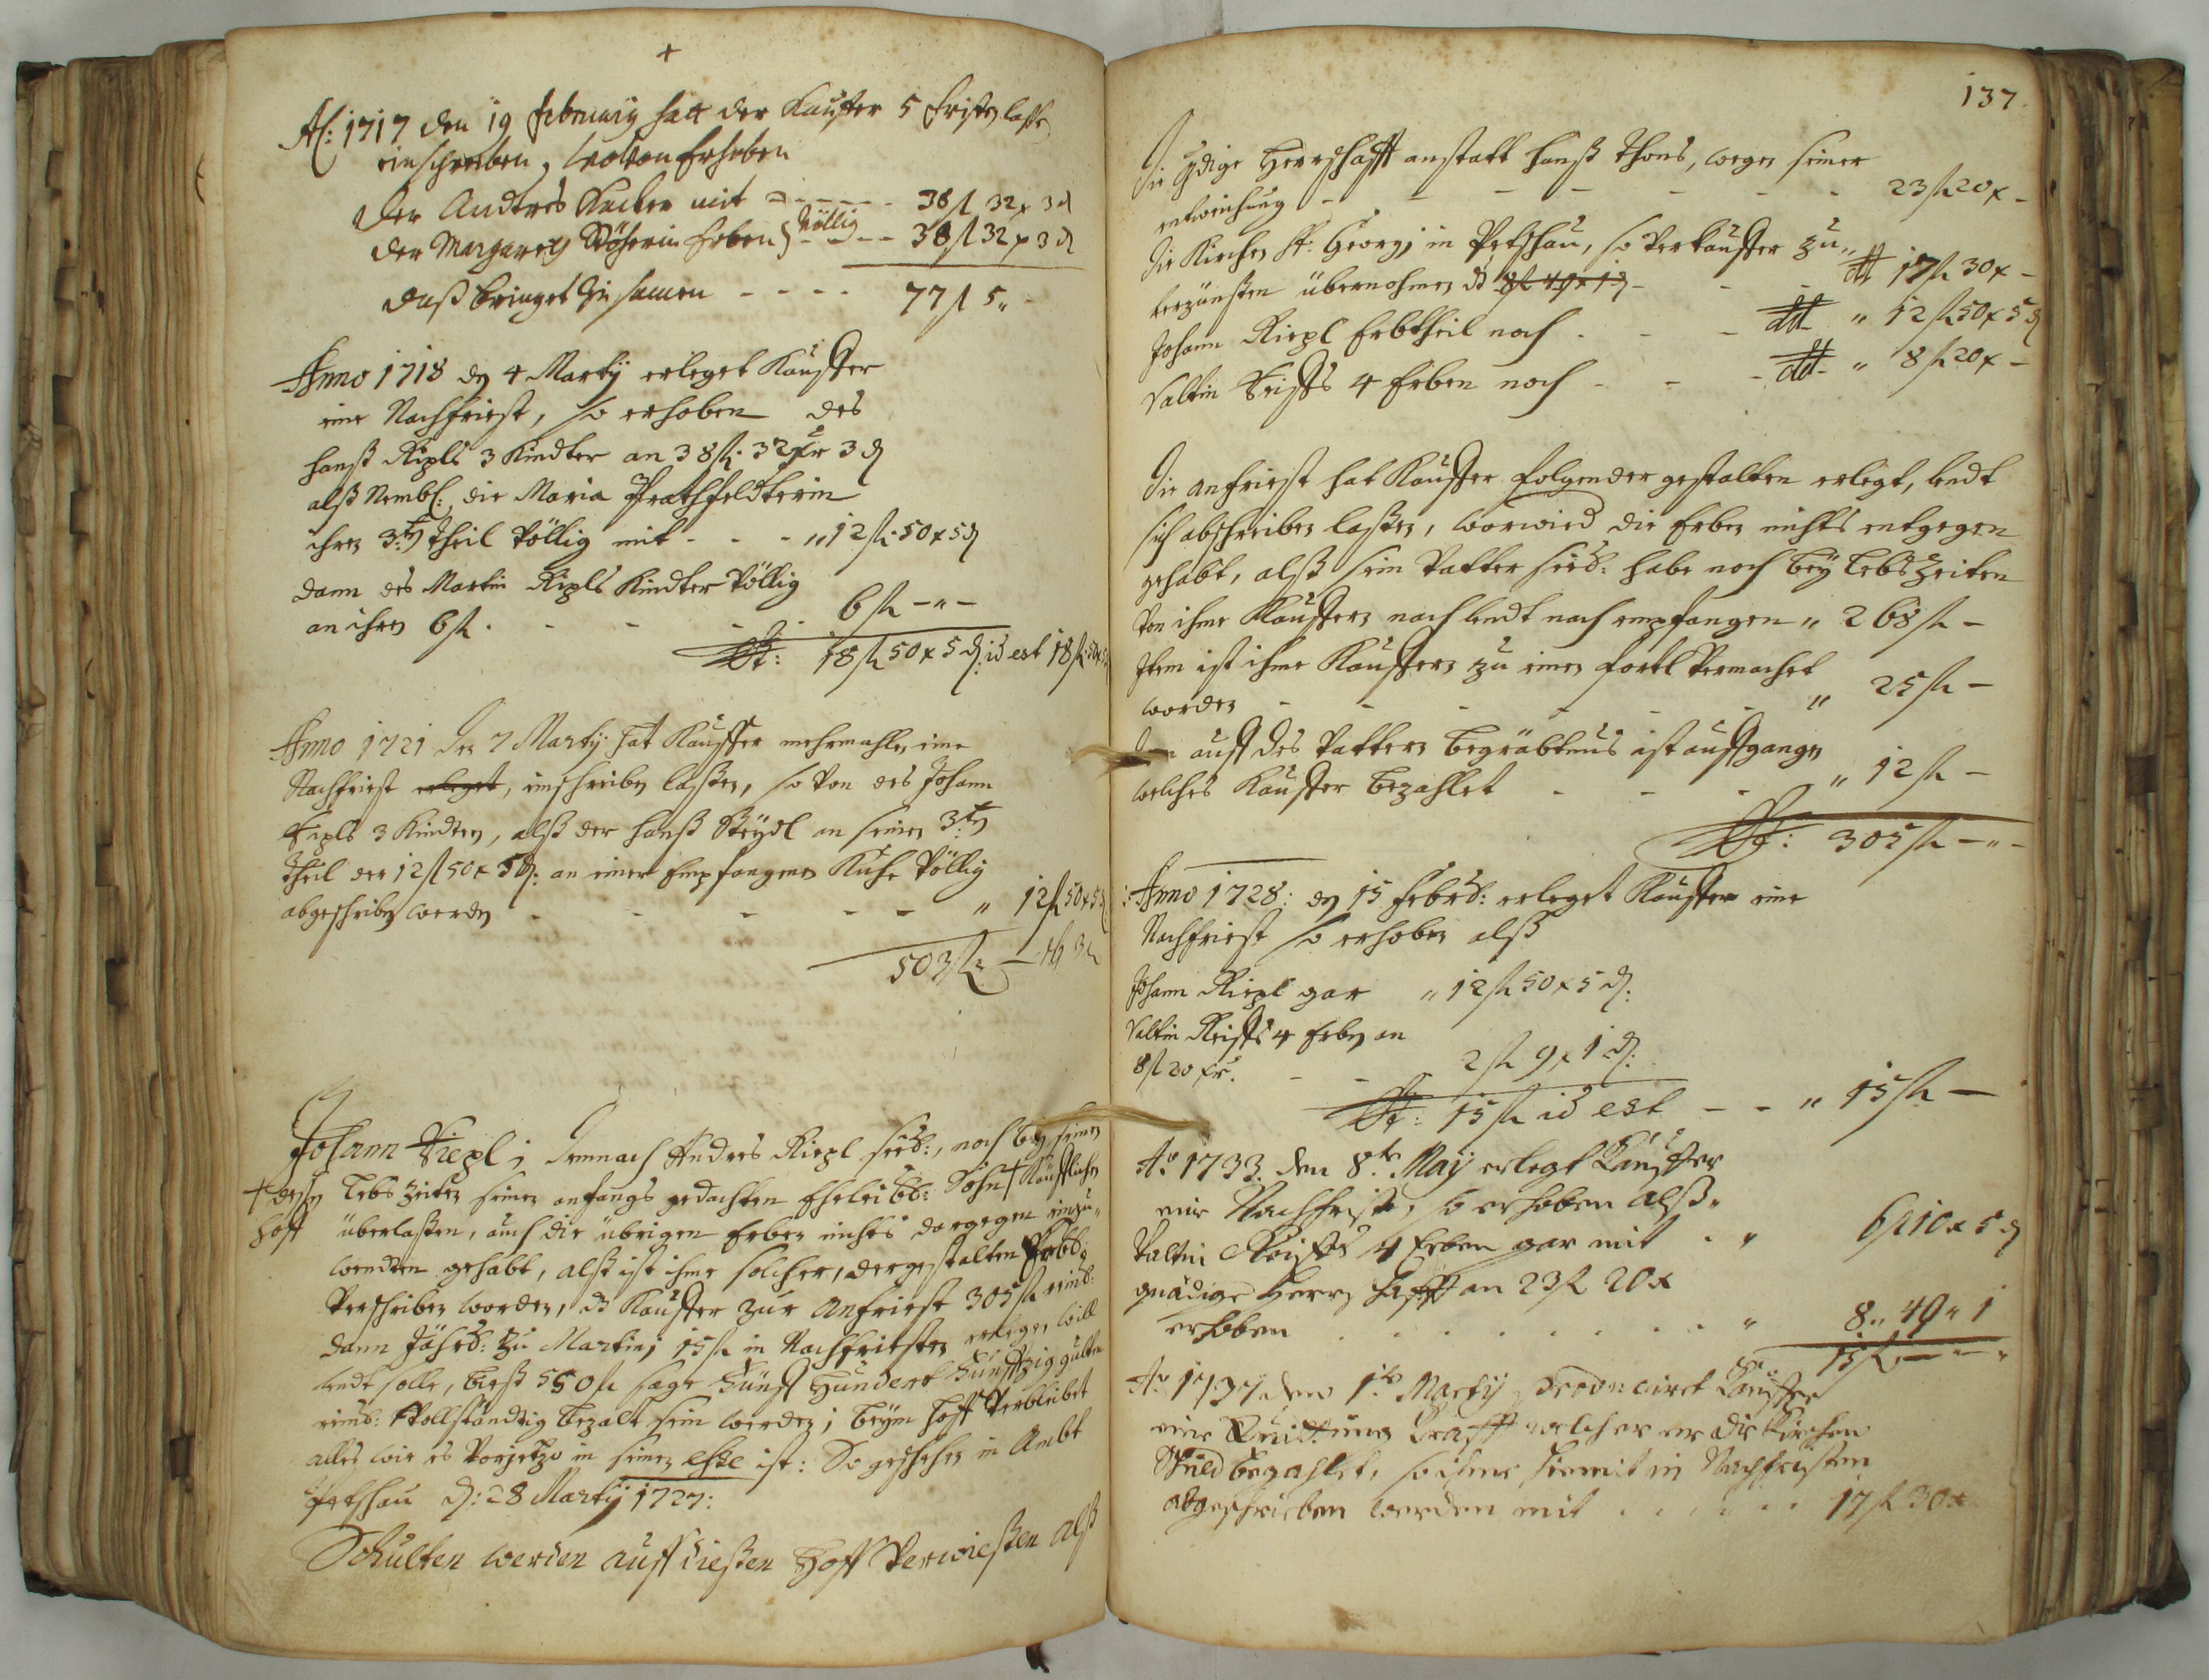 +
Aō: 1717 den 19 february hatt der Kauffer 5 fristen lasse
einschreiben, wovon Erhoben
der Andres Kacker mit - - - - 38 fl 32 x 3 d
der Margareth Stöherin Erben völlig - - - 38 fl 32 x 3 d
daß bringet zu samen - - - - 77 fl 5 „ -
Anno 1718 den 4 Martij erleget Kauffer
eine Nachfriest, so erhoben des
Hanß Ripls 3 Kindter an 38 fl: 32 xr 3 d
alß Nembl: die Maria Prathfeldterin
ihren 3:ten Theil völlig mit - - - „ 12 fl: 50 x 5 d
dann des Martin Ripls Kindter völlig
an ihren 6 fl. - - - - 6 fl - „ -
18 fl 50 x 5 d: id est 18 fl: 50 x 5
Anno 1721 den 7 Martij hat Kauffer mehrmahlen eine
Nachfriest erleget, einschreiben lassen, so von des Johann
Ripls 3 Kindtern, alß der Hanß Seydl an seinen 3:ten
Theil der 12 fl 50 x 5 d: an einer Empfangenen Kuhe völlig
abgeschriben werden - - - - - „ 12 fl 50 x 5 d
503 fl:
Johann Riepl; Demnach Andres Riepl seel:, noch bey seinen
Lebs Zeiten seinen anfangs gedachten Eheleibl: Sohn + Käufflichen
+ desen
Hoff
überlassen, auch die übrigen Erben nichts dargegen einzu„
wendten gehabt, alß ist ihme solcher, dergestalten Erbl:
verschriben worden, das Kauffer zur Anfriest 305 fl reinl:
dann Jährl: zu Martinj 15 fl in Nachfriesten erlegen will
undt solle, bieß 550 fl sage Fünff Hundert Fünffzig gulten
reinl: vollständtig bezalt sein werden; beym Hoff verbleibet
alles wie es vorjetzo in seinen esse ist: So geschehen in Ambt
Petschau d: 28 Martij 1727:
Schulten werden auff dießen Hoff verwießen alß
137.
Die Gdige Herrschafft anstatt Hanß Thons, wegen seiner
entweichung - - - - - - 23 fl 20 x -
Die Kirchen St: Georgj in Petschau, so verkauffer zu„
verzünßen übernohmen 8 fl 49 x 1 d - - - dt 17 fl 30 x -
Johann Riepl Erbtheil noch - - - dt „ 12 fl 50 x 5 d
Valtin Reists 4 Erben noch - - - dt „ 8 fl 20 x -
Die anfriest hat Kauffer folgender gestalten erlegt, undt
sich abschreiben lassen, worwied die Erben nichts entgegen
gehabt, alß sein Vatter seel: habe noch bey Lebs Zeiten
von ihme Kauffern nach undt nach empfangen „ 268 fl -
Item ist ihme Kauffern zu einen fortl vermachet
worden - - - - - „ 25 fl -
auff des Vattern begräbtnus ist auffgangen
welches Kauffer bezahlet - - - „ 12 fl -
305 fl - „ -
Anno 1728: den 15 Febrl: erleget Kauffer eine
Nachfriest so erhoben alß
Johann Riepl gar „ 12 fl 50 x 5 d:
Valtin Reists 4 Erben an
8 fl 20 xr. - - 2 fl 9 x 1 d:
15 fl id est - - „ 15 fl -
Aō 1733. den 8ten May erlegt Kauffer
eine Nachfrist, so erhoben alß„
Valtin Reists 4 Erben gar mit . „ 6 fl 10 x 5 d
gnädige Herrschafft an 23 fl 20 x
erhoben . . . . . . . „ 8 „ 49 „ 1
15 fl - „ - „
Aō 1737 den 1ten Martij producirt Kauffer
eine Quittung Krafft welcher er die Kirchen
Schuld bezahlet, so ihme hiemit in Nachfristen
abgeschrieben werden mit . . . . . 17 fl 30 x